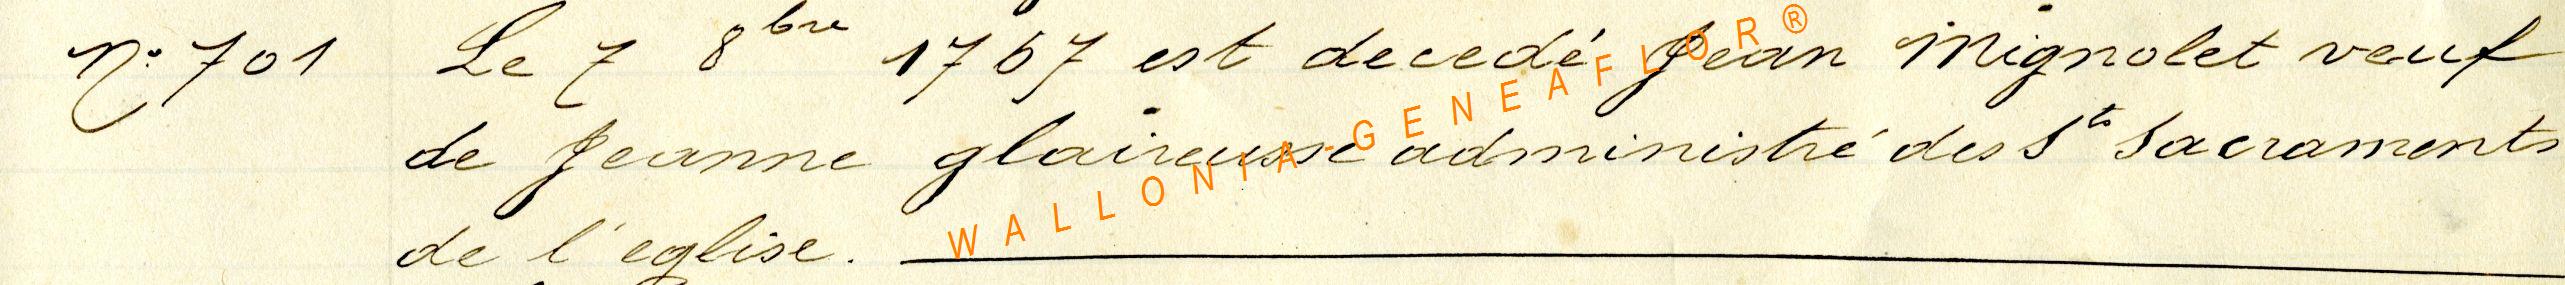 N° 701 Le 7 8bre 1767 est decedé Jean Mignolet veuf
de Jeanne glaireusse administré des Sts Sacraments
de l'eglise.
WALLONIA-GENEAFLOR®